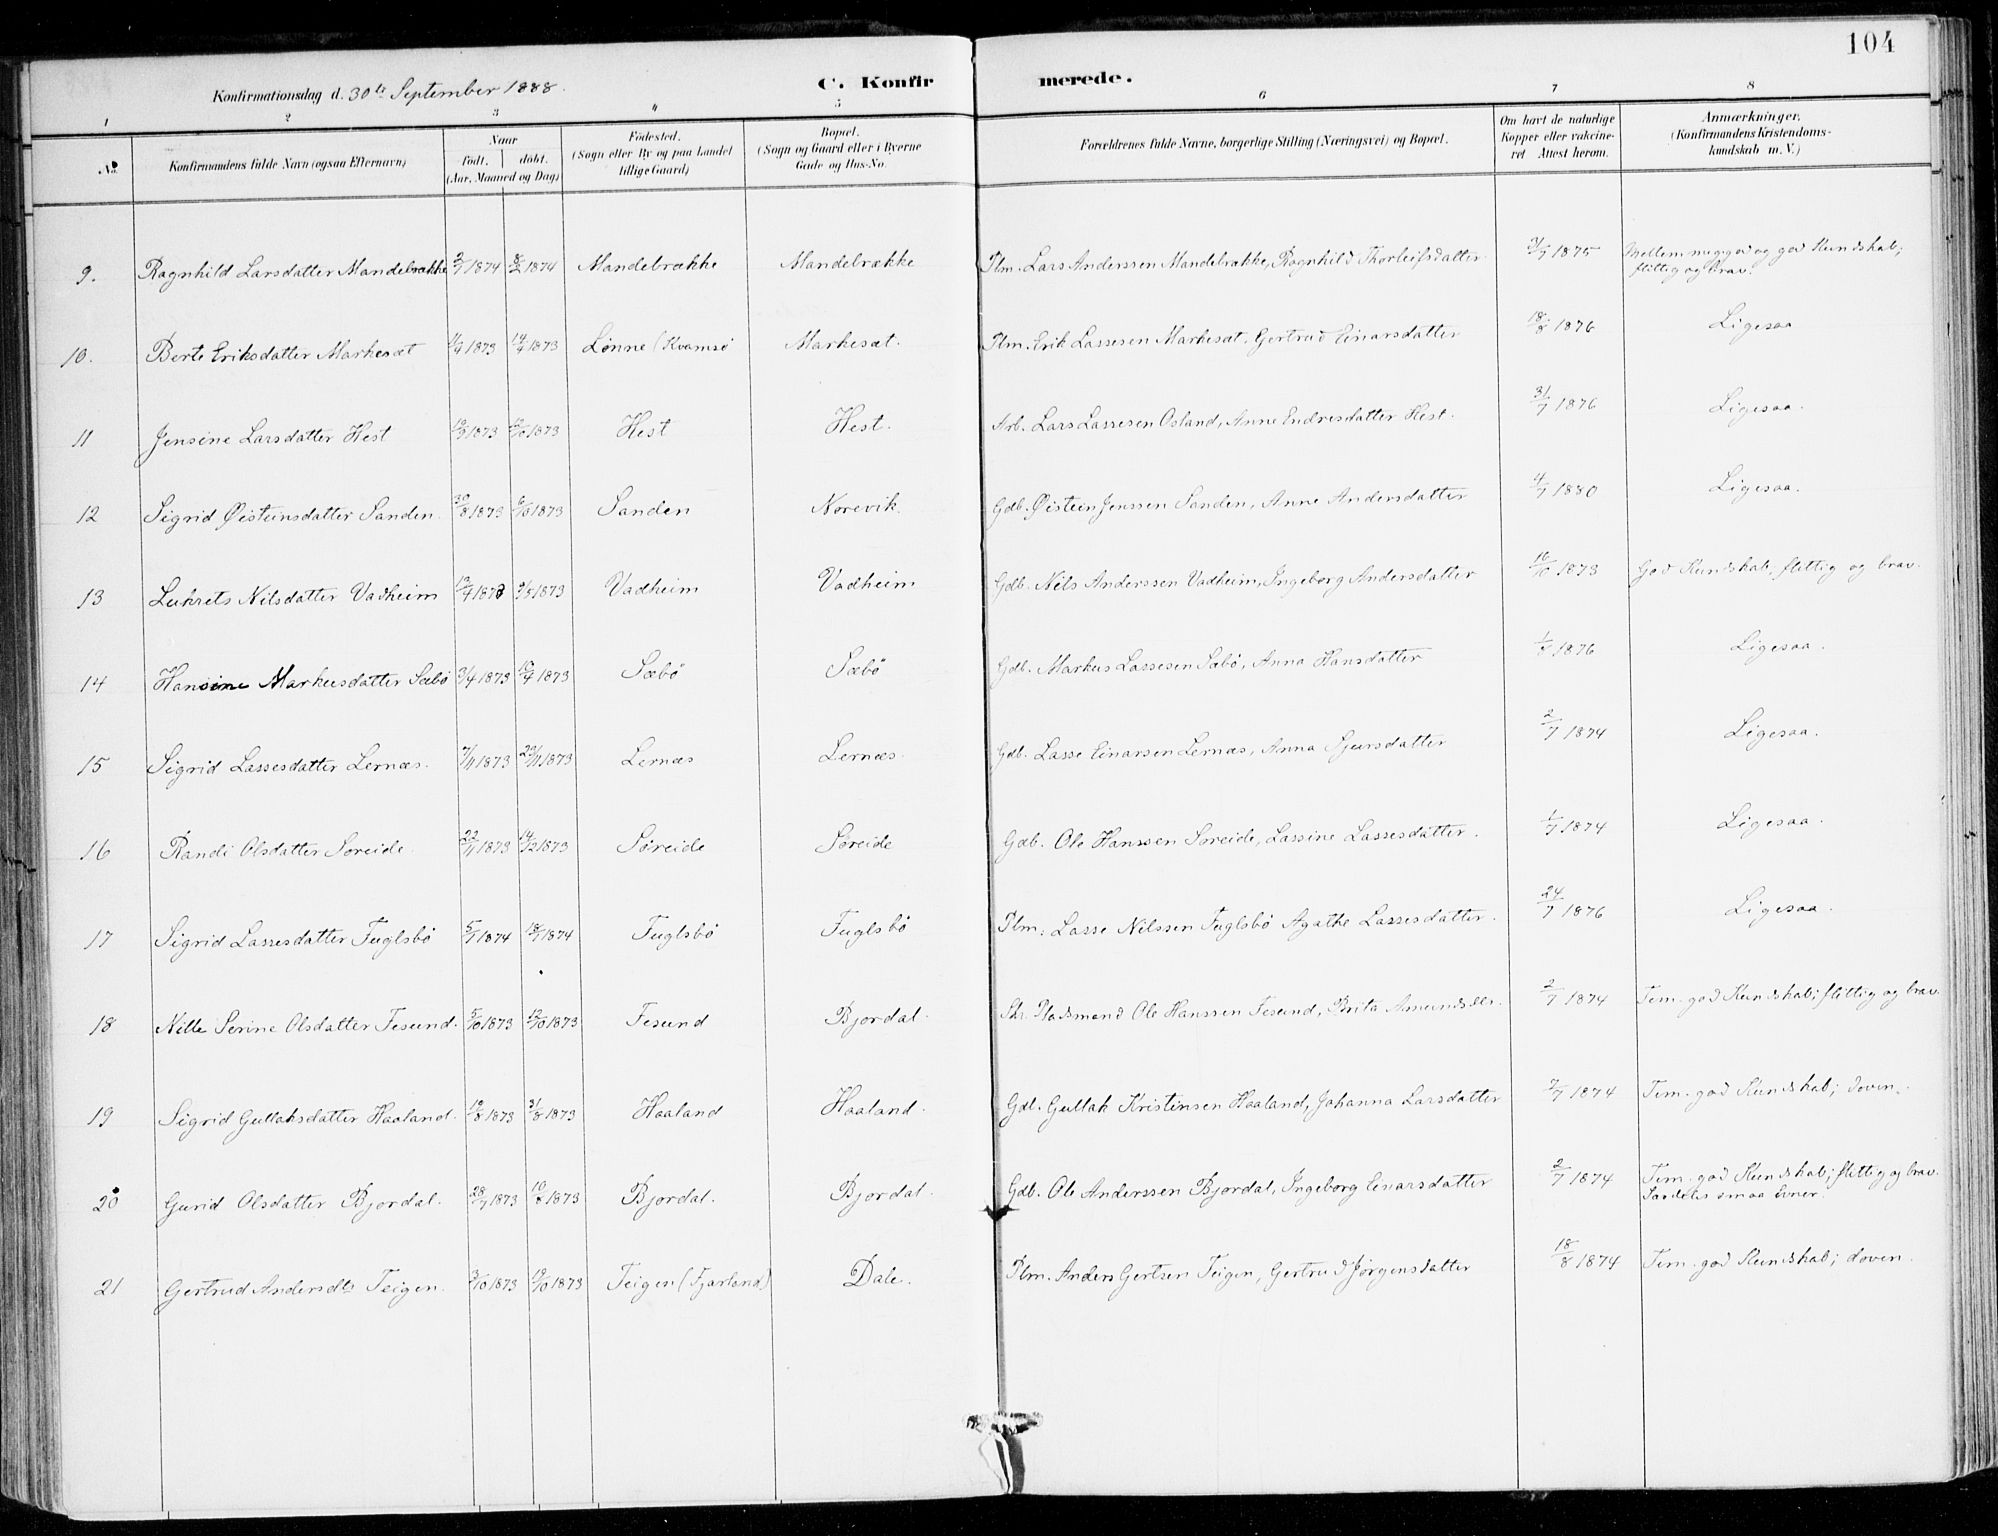 104
Konfirmationsdag d. 30te September 1888.
C. Konfirmerede.
1 2 3 4 5 6 7 8
No. | Konfirmandens fulde Navn (ogsaa Efternavn) | Naar født. døbt. (Aar, Maaned og Dag) | Fødested. (Sogn eller By og paa Landet tillige Gaard) | Bopæl. (Sogn og Gaard eller i Byerne Gade og Hus-No. | Forældrenes fulde Navne, borgerlige Stilling (Næringsvei) og Bopæl. | Om havt de naturlige Kopper eller vakcineret Attest herom. | Anmærkninger. (Konfirmandens Kristendomskundskab m. V.)
9. Ragnhild Larsdatter Mandebrække 1874 8/2 1874 Mandebrække Mandebrække Plm. Lars Anderssen Mandebrække, Ragnhild Thorleifsdatter 1875 Mellem meget god og god Kundskab; flittig og brav.
10. Berte Eriksdatter Markesæt 1873 14/4 1873 Lønne (Kvamsø Markesæt. Plm. Erik Lassesen Markesæt, Gertrud Einarsdatter 18/8 1876 Ligesaa
11 Jensine Larsdatter Hest 1873 1873 Hest Hest. Arb. Lars Lassesen Osland, Anne Endresdatter Hest. 31/7 1876 Ligesaa.
12 Sigrid Øisteinsdatter Sanden. 30/8 1873 6/10 1873 Sanden Norevik. Gdb. Øistein Jenssen Sanden, Anne Andersdatter 4/7 1880 Ligesaa.
13 Lukrets Nilsdatter Vadheim 1873 9/5 1873 Vadheim Vadheim Gdb. Nils Anderssen Vadheim, Ingeborg Andersdatter 16/10 1873 God Kundskab, flittig og brav.
14 Hansine Markusdatter Sæbø 3/4 1873 1873 Sæbø Sæbø Gdb. Markus Lassesen Sæbø, Anna Hansdatter 1876 Ligesaa.
15 Sigrid Lassesdatter Lernæs. 7/11 1873 23/11 1873 Lernæs Lernæs. Gdb. Lasse Einarsen Lernæs, Anna Sjursdatter 2/7 1874 Ligesaa.
16 Randi Olsdatter Søreide. 22/11 1873 14/12 1873 Søreide Søreide Gdb. Ole Hanssen Søreide, Lassine Lassesdatter. 1/7 1874 Ligesaa.
17 Sigrid Lassesdatter Fuglsbø 5/7 1874 18/7 1874 Fuglsbø Fuglsbø Plm: Lasse Nilssen Fuglsbø Agathe Lassesdatter. 24/7 1876 Ligesaa.
18 Nille Serine Olsdatter Tesund. 5/10 1873 12/10 1873 Tesund Bjordal. Pladsmand Ole Hanssen Tesund, Brita Amundsdtr. 2/7 1874 Tem. god Kundskab; flittig og brav.
19 Sigrid Gullaksdatter Haaland. 19/8 1873 31/8 1873 Haaland Haaland. Gdb. Gullak Kristinsen Haaland, Johanna Larsdatter 2/7 1874 Tem. god Kundskab; doven.
20 Gurid Olsdatter Bjordal. 28/7 1873 10/8 1873 Bjordal. Bjordal. Gdb. Ole Anderssen Bjordal, Ingeborg Einarsdatter 2/7 1874 Tem. god Kundskab; flittig og brav. Særdeles smaa Evner.
21 Gertrud Andersdtr Teigen. 1873 19/10 1873 Teigen (Fjærland) Dale. Plm. Anders Gertsen Teigen, Gertrud Jørgensdatter 18/8 1874 Tem. god Kundskab; doven.